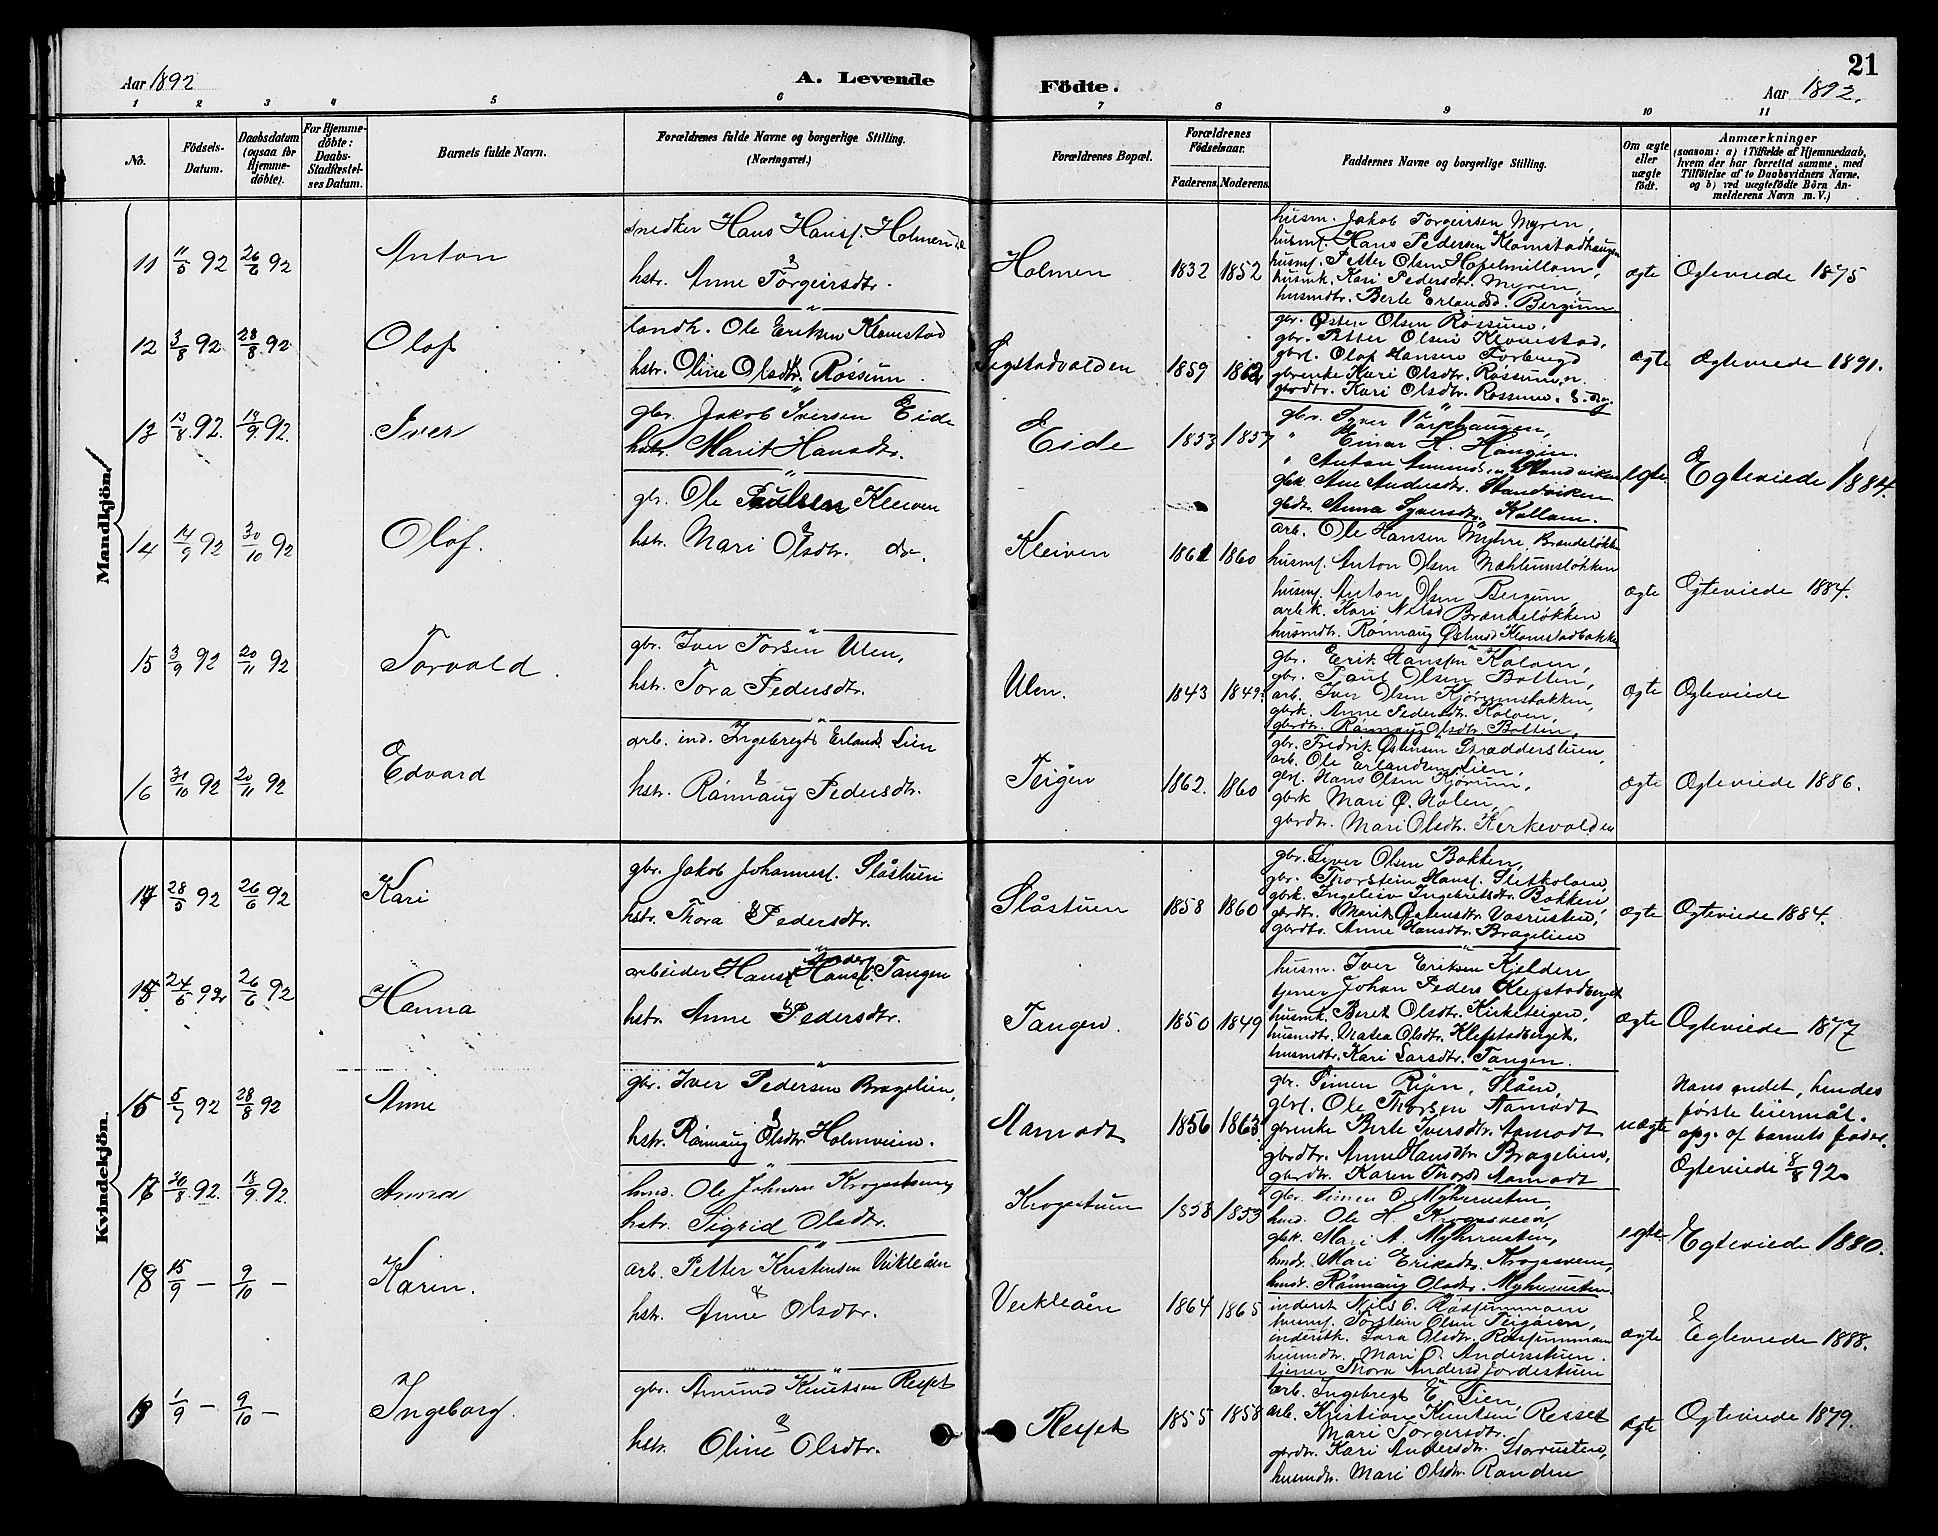 Aar 1892
A. Levende
Födte.
Aar 1892.
21
1 2 3 4 5 6 7 8 9 10 11
Nô.
Födsels-Datum.
Daabsdatum (ogsaa för Hjemme-döbte).
For Hjemme-döbte: Daabs-Stadfæstel-ses Datum.
Barnets fulde Navn.
Forældrenes fulde Navne og borgerlige Stilling. (Næringsvei.)
Forældrenes Bopæl.
Forældrenes Födselsaar.
Faderens. Moderens.
Faddernes Navne og borgerlige Stilling.
Om ægte eller uægte födt.
Anmærkninger (saasom: a) i Tilfælde af Hjemmedaab, hvem der har forrettet samme, med Tilföielse af to Daabsvidners Navne, og b) ved uægtefödte Börn Anmelderens Navn m. V.)
Mandkjön.
11 11/5 92 26/6 92 Anton
Snedker Hans Hansf. Holmen
hstr. Anne Torgeirsdtr.
Holmen 1832 1852
husm. Jakob Torgeirsen Myren,
husmf. Hans Pedersen Klomstadhaugen
husmf. Petter Olsen
husmk. Kari Pedersdtr. Myren,
husmdtr. Berte Erlandsd. Bergum
ægte Ægteviede 1875
12 3/8 92 28/8 92 Olaf
landh. Ole Eriksen Klomstad
hstr. Oline Olsdtr. Røssum.
Sigstadvolden 1859 1862
gbr. Østen Olsen Røssum,
gbr. Petter Olsen Klomstad,
gbrf. Olaf Hansen Forbrigd
gbrenke Kari Olsdtr. Røssum
gbrdtr. Kari Olsdtr. Røssum.
ægte Ægteviede 1891.
13 13/8 92. 18/9 92. Iver
gbr. Jakob Iversen Eide
hstr. Marit Hansdtr.
Eide 1853 1857
gbr. Syver
" Einar H. Haugen.
" Anton Amunds. Strandviken
gbk. Ane Andersdtr. Strandviken
gbdt. Anna Syversdtr. Kollam.
ægte Egteviede 1884.
14 14/9 92 30/10 92 Olaf.
gbr. Ole Paulsen Kleiven
hstr. Mari Olsdtr. do.
Kleiven 1861 1860
arb. Ole Hansen Myhre, Brændeløkken
husmf. Anton Olsen Mæhlumsløkken
husmf. Anton Olsen Bergum
arbk. Kari Nilsd Brændeløkken
husmdtr. Rønnaug Østensd Klomstadbakken
ægte Ægteviede 1884.
15 3/9 92 20/11 92 Torvald.
gbr. Iver Torsen Ulen,
hstr. Tora Pedersdtr.
Ulen. 1843 1849.
gbr. Erik Hansen Kolom,
gbr. Paul Olsen Botten,
arb. Iver Olsen Kjørumsbakken,
gbrk. Anne Pedersdtr. Kolom,
gbrdtr. Rønnaug Olsdtr. Botten,
ægte Ægteviede
16 30/10 92 20/11 92 Edvard
arb. ind. Ingebregt Erlands. Lien
hstr. Rønnaug Pedersdtr.
Teigen 1862. 1860
gbr. Fredrik Østensen
arb. Ole Erlandsen Lien,
gbrf. Hans Olsen Kjørum,
gbrk Mari O. Holen,
gbrdtr. Mari Olsdtr. Kerkevolden
ægte Ægteviede 1886.
Kvindekjön.
14 28/5 92 26/6 92 Kari
gbr. Jakob Johannesf. Slåstuen
hstr. Thora Pedersdtr.
Slåstuen 1858 1860
gbr. Syver Olsen Bakken,
gbr. Thorstein Hansf. Sletkolom,
gbrk. Ingeleiv Ingebretsdtr. Bakken
gbrdtr. Marit Østensdtr. Vasrusten,
gbrdtr. Anne Hansdtr. Bragelien
ægte Ægteviede 1884.
15 24/5 92 26/6 92 Hanna
arbeider Hans Andersf. Tangen
hstr. Anne Pedersdtr.
Tangen. 1850 1849
husm. Iver Eriksen Kjelden
tjener Johan Peders Klefstadberget
husmk. Beret Olsdtr. Kirketeigen,
husmdtr. Matea Olsdtr. Klefstadberget,
husmdtr. Kari Larsdtr. Tangen.
ægte Ægteviede 1877
16 5/7 92 28/8 92 Anne
gbr. Iver Pedersen Bragelien,
hstr. Rønnaug Olsdtr. Holmveien.
Aamodt 1856 1863
gbr. Simen Rijn, Slåen,
gbrf. Ole Thorsen Aamodt
gbrenke Berte Iversdtr. Aamodt
gbrdtr. Anne Hansdtr. Bragelien,
gbrdtr. Karen Thorsd Aamodt
uægte Hans andet, hendes
første leiermål.
opg. af barnets fader.
Ægteviede 8/8 92.
17 20/8 92. 18/9 92. Anna
husd. Ole Johnsen Krogastuen
hstr. Sigrid Olsdtr.
Krogstuen 1858 1853
gbr. Simen O. Myhrusten,
husd. Ole H. Krogsveen,
gbk. Mari A. Myhrusten,
husdr. Mari Eriksdtr. Krogsveen,
husdr. Rønnaug Olsdtr. Myhrusten.
ægte Egteviede 1880.
18 15/9 — 9/10 — Karen.
arb. Petter Kristensen Veikleåen
hstr. Anne Olsdtr.
Veikleåen 1864 1865
inderst Nils O.
husmf. Torstein Olsen Teigåien,
inderstk. Tora Olsdtr.
husmdtr. Mari O. Andersstuen.
tjener Thora Andersd Jordestuen
ægte Egteviede 1888.
19 1/9 — 9/10 — Ingeborg.
gbr. Amund Knutsen Resset
hstr. Oline Olsdtr.
Resset 1855 1858
arb. Ingebregt E. Lien,
arb. Kristian Knutsen Resset
Mari Torgersdtr.
gbrdtr. Kari Andersdtr. Storrusten,
husmdtr. Mari Olsdtr. Randen
ægte Ægteviede 1879.